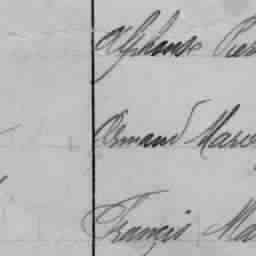 Alphonse Pier
Armand Marc
Francis Ma